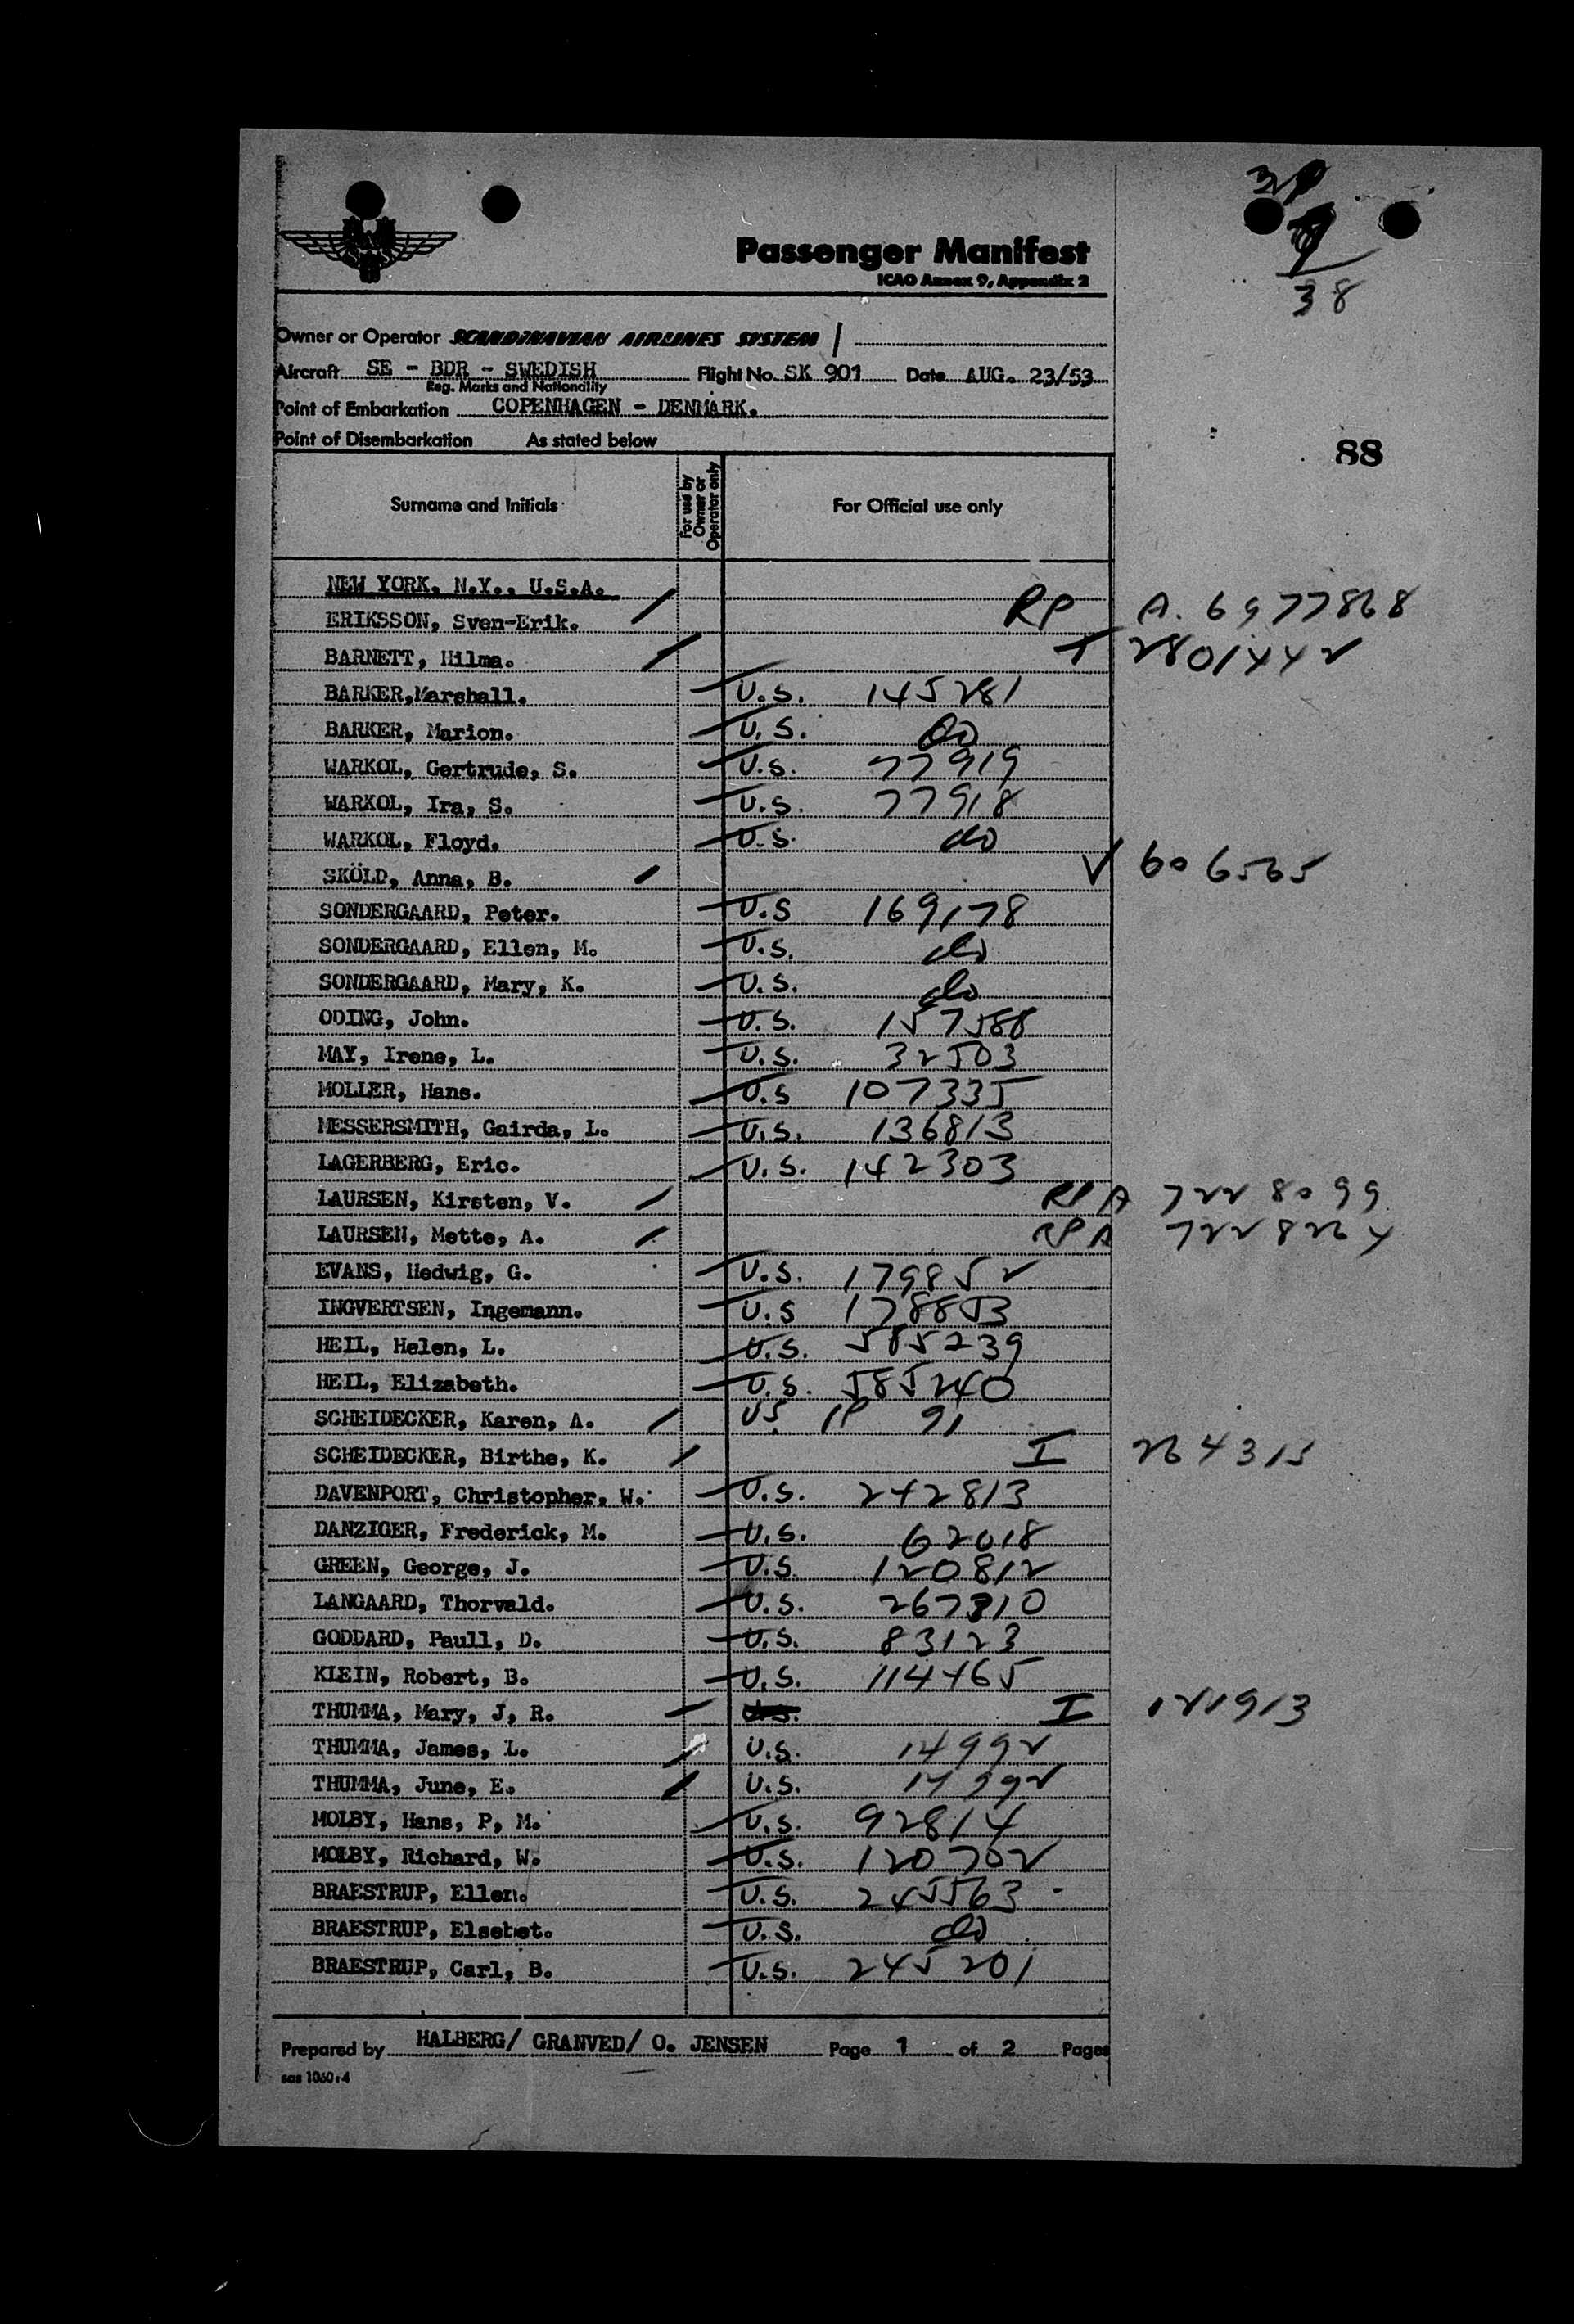 38
Passenger Manifest
ICAO Annex 9, Appendix 2
Owner or Operator SCANDINAVIAN AIRLINES SYSTEM
Aircraft SE - BDR - SWEDISH Flight No. SK 901 Date AUG. 23/53
Reg. Marks and Nationality
Point of Embarkation COPENHAGEN - DENMARK.
Point of Disembarkation As stated below
88
Surname and Initials For use by Owner or Operator only For Official use only
NEW YORK, N.Y., U.S.A.
ERIKSSON, Sven-Erik. RP A. 6977868
BARNETT, Hilma. 2801442
BARKER,Marshall. U.S. 145281
BARKER, Marion. U.S. do
WARKOL, Gertrude, S. U.S. 77919
WARKOL, Ira, S. U.S. 77918
WARKOL, Floyd. U.S. do
SKÖLD, Anna, B. V 606565
SONDERGAARD, Peter. U.S 169178
SONDERGAARD, Ellen, M. U.S. do
SONDERGAARD, Mary, K. U.S. do
ODING, John. U.S. 157588
MAY, Irene, L. U.S. 32503
MOLLER, Hans. U.S 107335
MESSERSMITH, Gairda, L. U.S. 136813
LAGERBERG, Eric. U.S. 142303
LAURSEN, Kirsten, V. RP A 7228099
LAURSEN, Mette, A. RP A 7228264
EVANS, Hedwig, G. U.S. 179852
INGVERTSEN, Ingemann. U.S 178853
HEIL, Helen, L. U.S. 585239
HEIL, Elizabeth. U.S. 585240
SCHEIDECKER, Karen, A. US. 91
SCHEIDECKER, Birthe, K. I 264315
DAVENPORT, Christopher, W. U.S. 242813
DANZIGER, Frederick, M. U.S. 62018
GREEN, George, J. U.S. 120812
LANGAARD, Thorvald. U.S. 267310
GODDARD, Paull, D. U.S. 83123
KLEIN, Robert, B. U.S. 114465
THUMMA, Mary, J, R. U.S. I 121913
THUMMA, James, L. U.S. 14992
THUMMA, June, E. U.S. 14992
MOLBY, Hans, P, M. U.S. 92814
MOLBY, Richard, W. U.S. 120702
BRAESTRUP, Ellen. U.S. 245563
BRAESTRUP, Elsebet. U.S. do
BRAESTRUP, Carl, B. U.S. 245201
Prepared by HALBERG/ GRANVED/ O. JENSEN Page 1 of 2 Pages
sas 1060:4